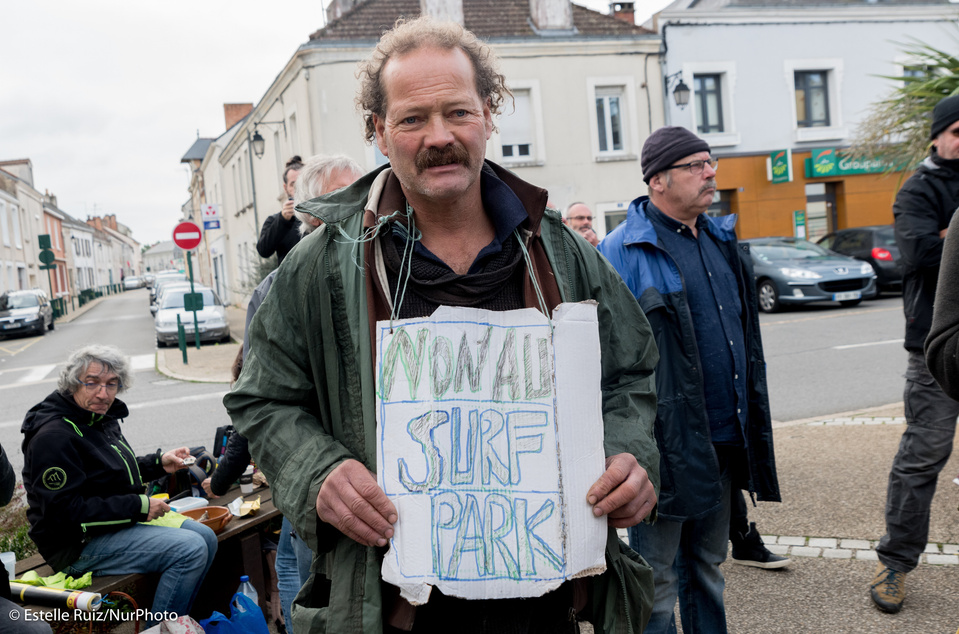 NON AU
SURF
PARK
Groupama
© Estelle Ruiz/NurPhoto